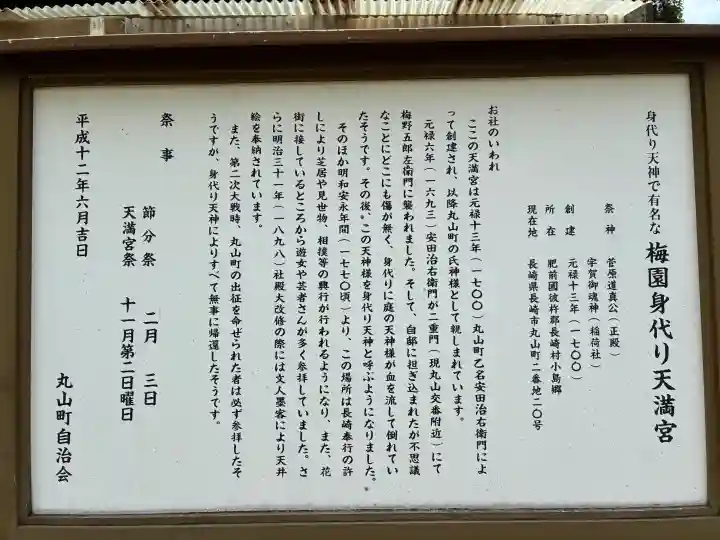 身代り天神で有名な 梅園身代り天満宮
祭神 菅原道真公(正殿)
宇賀御魂神(稲荷社)
創建 元禄十三年(一七〇〇)
所在 肥前國彼杵郡長崎村小島郷
現在地 長崎県長崎市丸山町二番地二〇号
お社のいわれ
ここの天満宮は元禄十三年(一七〇〇)丸山町乙名安田治右衛門によ
って創建され、以降丸山町の氏神様として親しまれています。
元禄六年(一六九三)安田治右衛門が二重門(現丸山交番附近)にて
梅野五郎左衛門に襲われました。そして、自邸に担ぎ込まれたが不思議
なことにどこにも傷が無く、身代りに庭の天神様が血を流して倒れてい
たそうです。その後、この天神様を身代り天神と呼ぶようになりました。
そのほか明和安永年間(一七七〇頃)より、この場所は長崎奉行の許
しにより芝居や見世物、相撲等の興行が行われるようになり、また、花
街に接しているところから遊女や芸者さんが多く参拝していました。さ
らに明治三十一年(一八九八)社殿大改修の際には文人墨客により天井
絵を奉納されています。
また、第二次大戦時、丸山町の出征を命ぜられた者は必ず参拝したそ
うですが、身代り天神によりすべて無事に帰還したそうです。
祭事 節分祭 二月 三日
天満宮祭 十一月第二日曜日
平成十二年六月吉日
丸山町自治会